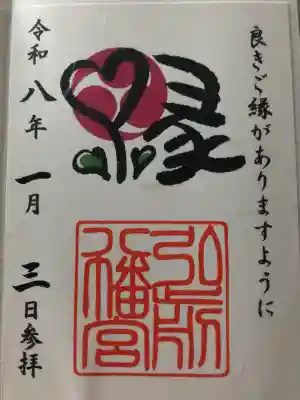 良きご縁がありますように
縁
弘前
八幡宮
令和八年一月三日参拝